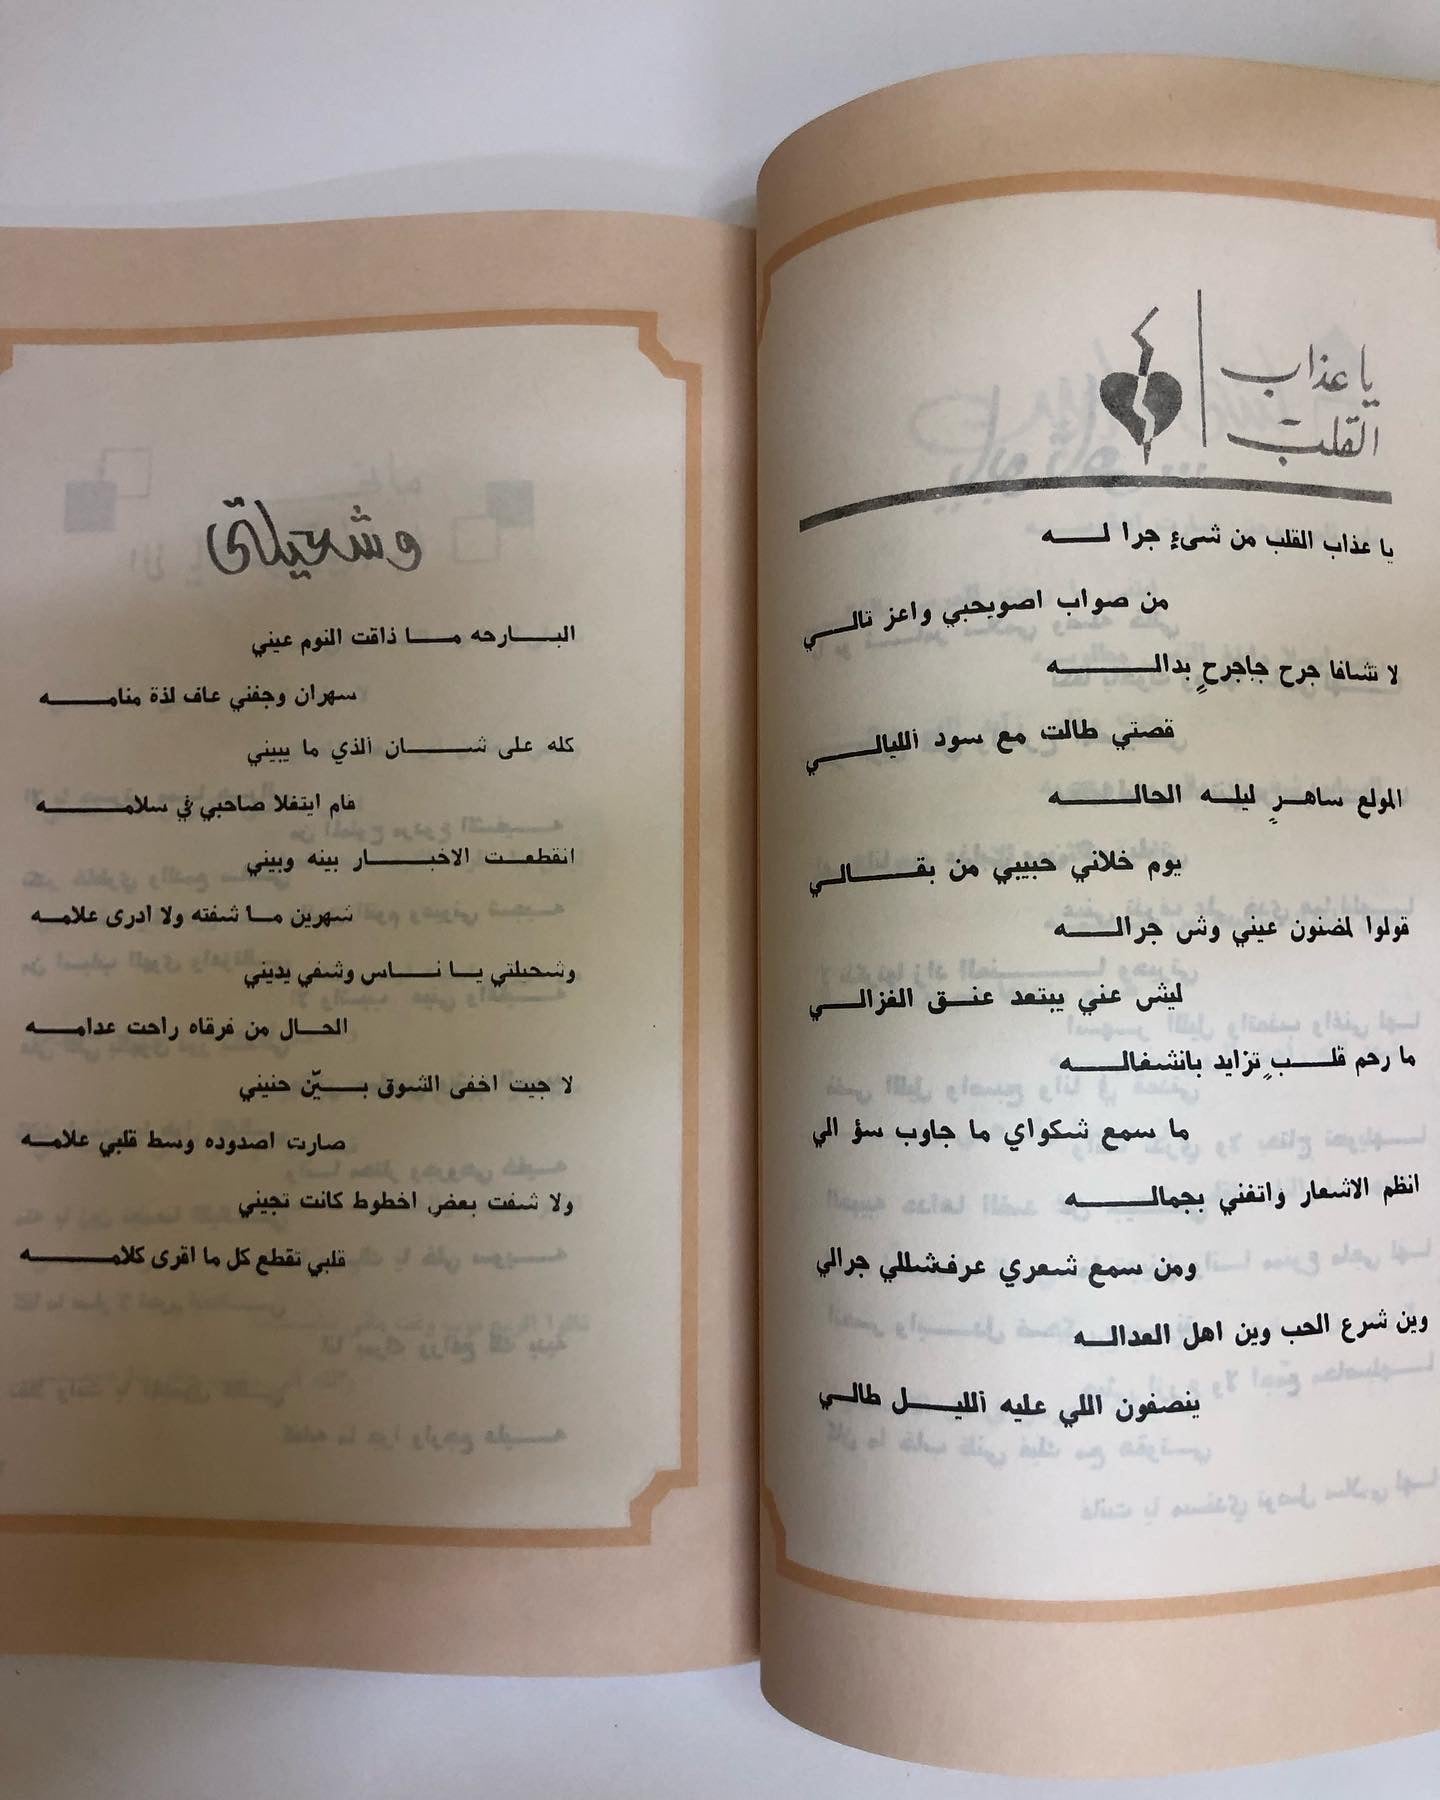 يا عذاب
القلب
يا عذاب القلب من شىءٍ جرا لـــه
من صواب اصويحبي واعز تالـــي
لا تشافا جرح جاجرحٍ بدالـــــه
قصتي طالت مع سود ألليالـــي
المولع ساهـرٍ ليلـه الحالـــــه
يوم خلاني حبيبي من بقـــالي
قولوا لمضنون عيني وش جرالـــــه
ليش عني يبتعد عنـق الغزالـــي
ما رحم قلـبٍ تزايد بانشغالـــــه
ما سمع شكواي ما جاوب سؤ الي
انظم الاشعار واتغني بجمالـــــه
ومن سمع شعري عرفشللي جرالي
وين شرع الحب وين اهل العدالـــه
ينصفون اللي عليه ألليـــل طالـي
وشحيلتي
البـــارحه مـــا ذاقت النوم عيني
سهران وجفني عاف لذة منامـــــه
كله على شـــان ألذي ما يبيني
قام ايتغلا صاحبي في سلامـــــه
انقطعـت الاخبـــار بينه وبيني
شهرين مـا شفته ولا ادرى علامـه
وشحيلتي يـا نـــاس وشفي يديني
الحـال من فرقاه راحت عدامـــه
لا جيت اخفى الشوق بـــيّن حنيني
صارت اصدوده وسط قلبي علامـــه
ولا شفت بعض اخطوط كانت تجيني
قلبي تقطع كل ما اقرى كلامـــــه